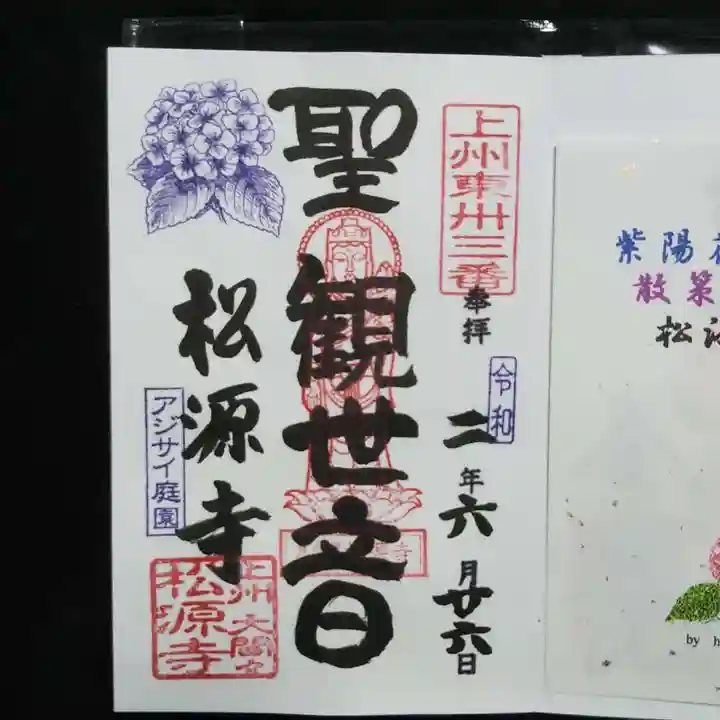 上州東卅三番
奉拝
令和
二年六月廿六日
聖観世音
松源寺
アジサイ庭園
松源寺
上州
紫陽
散策
松
by